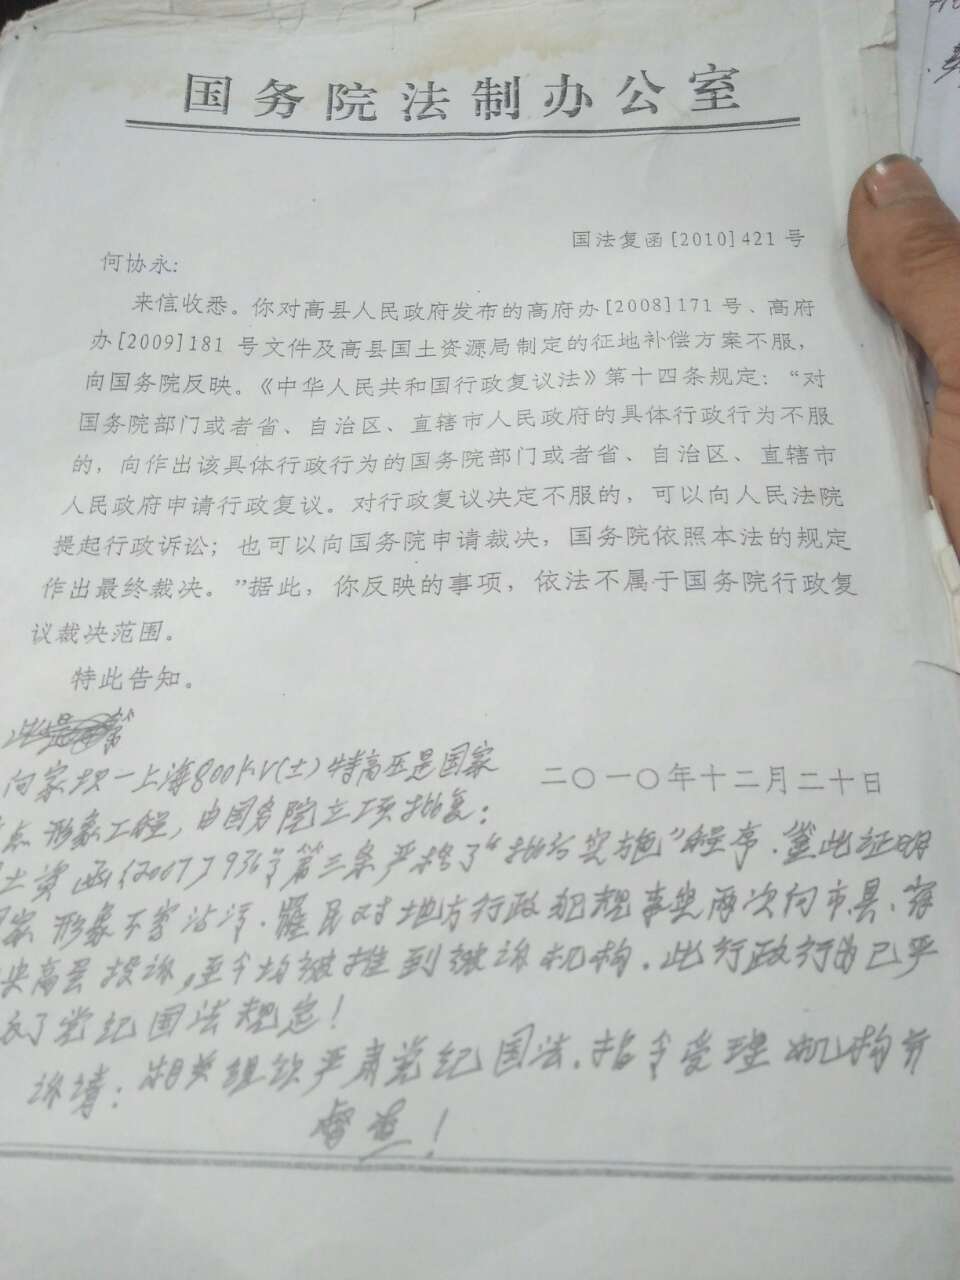 国务院法制办公室
国法复函[2010]421号
何协永:
来信收悉。你对高县人民政府发布的高府办[2008]171号、高府
办[2009]181号文件及高县国土资源局制定的征地补偿方案不服,
向国务院反映。《中华人民共和国行政复议法》第十四条规定:“对
国务院部门或者省、自治区、直辖市人民政府的具体行政行为不服
的,向作出该具体行政行为的国务院部门或者省、自治区、直辖市
人民政府申请行政复议。对行政复议决定不服的,可以向人民法院
提起行政诉讼;也可以向国务院申请裁决,国务院依照本法的规定
作出最终裁决。”据此,你反映的事项,依法不属于国务院行政复
议裁决范围。
特此告知。
二〇一〇年十二月二十日
此是 第
向家坝一上海800kv(土)特高压是国家
点形象工程,由国务院立项批复:
土资函(2007)936号第三条严格了“批后实施”程序.鉴此证明
家形象不容沾污. 民对地方行政犯规事兴两次向市县、省
央高层投诉,至今均被推到被诉机构.此行政行为已严
了党纪国法规定!
诉请:相关组织严肃党纪国法.指令受理机构并
督 !